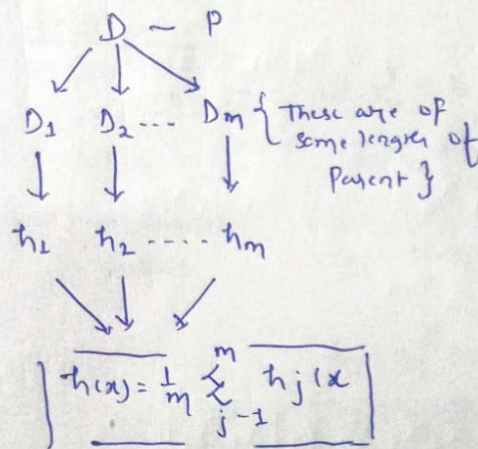 D ~ P
D1 D2 --- Dm { These are of
some length of
Parent }
h1 h2 ----- hm
h(x) = 1/m Σ m j-1 hj(x